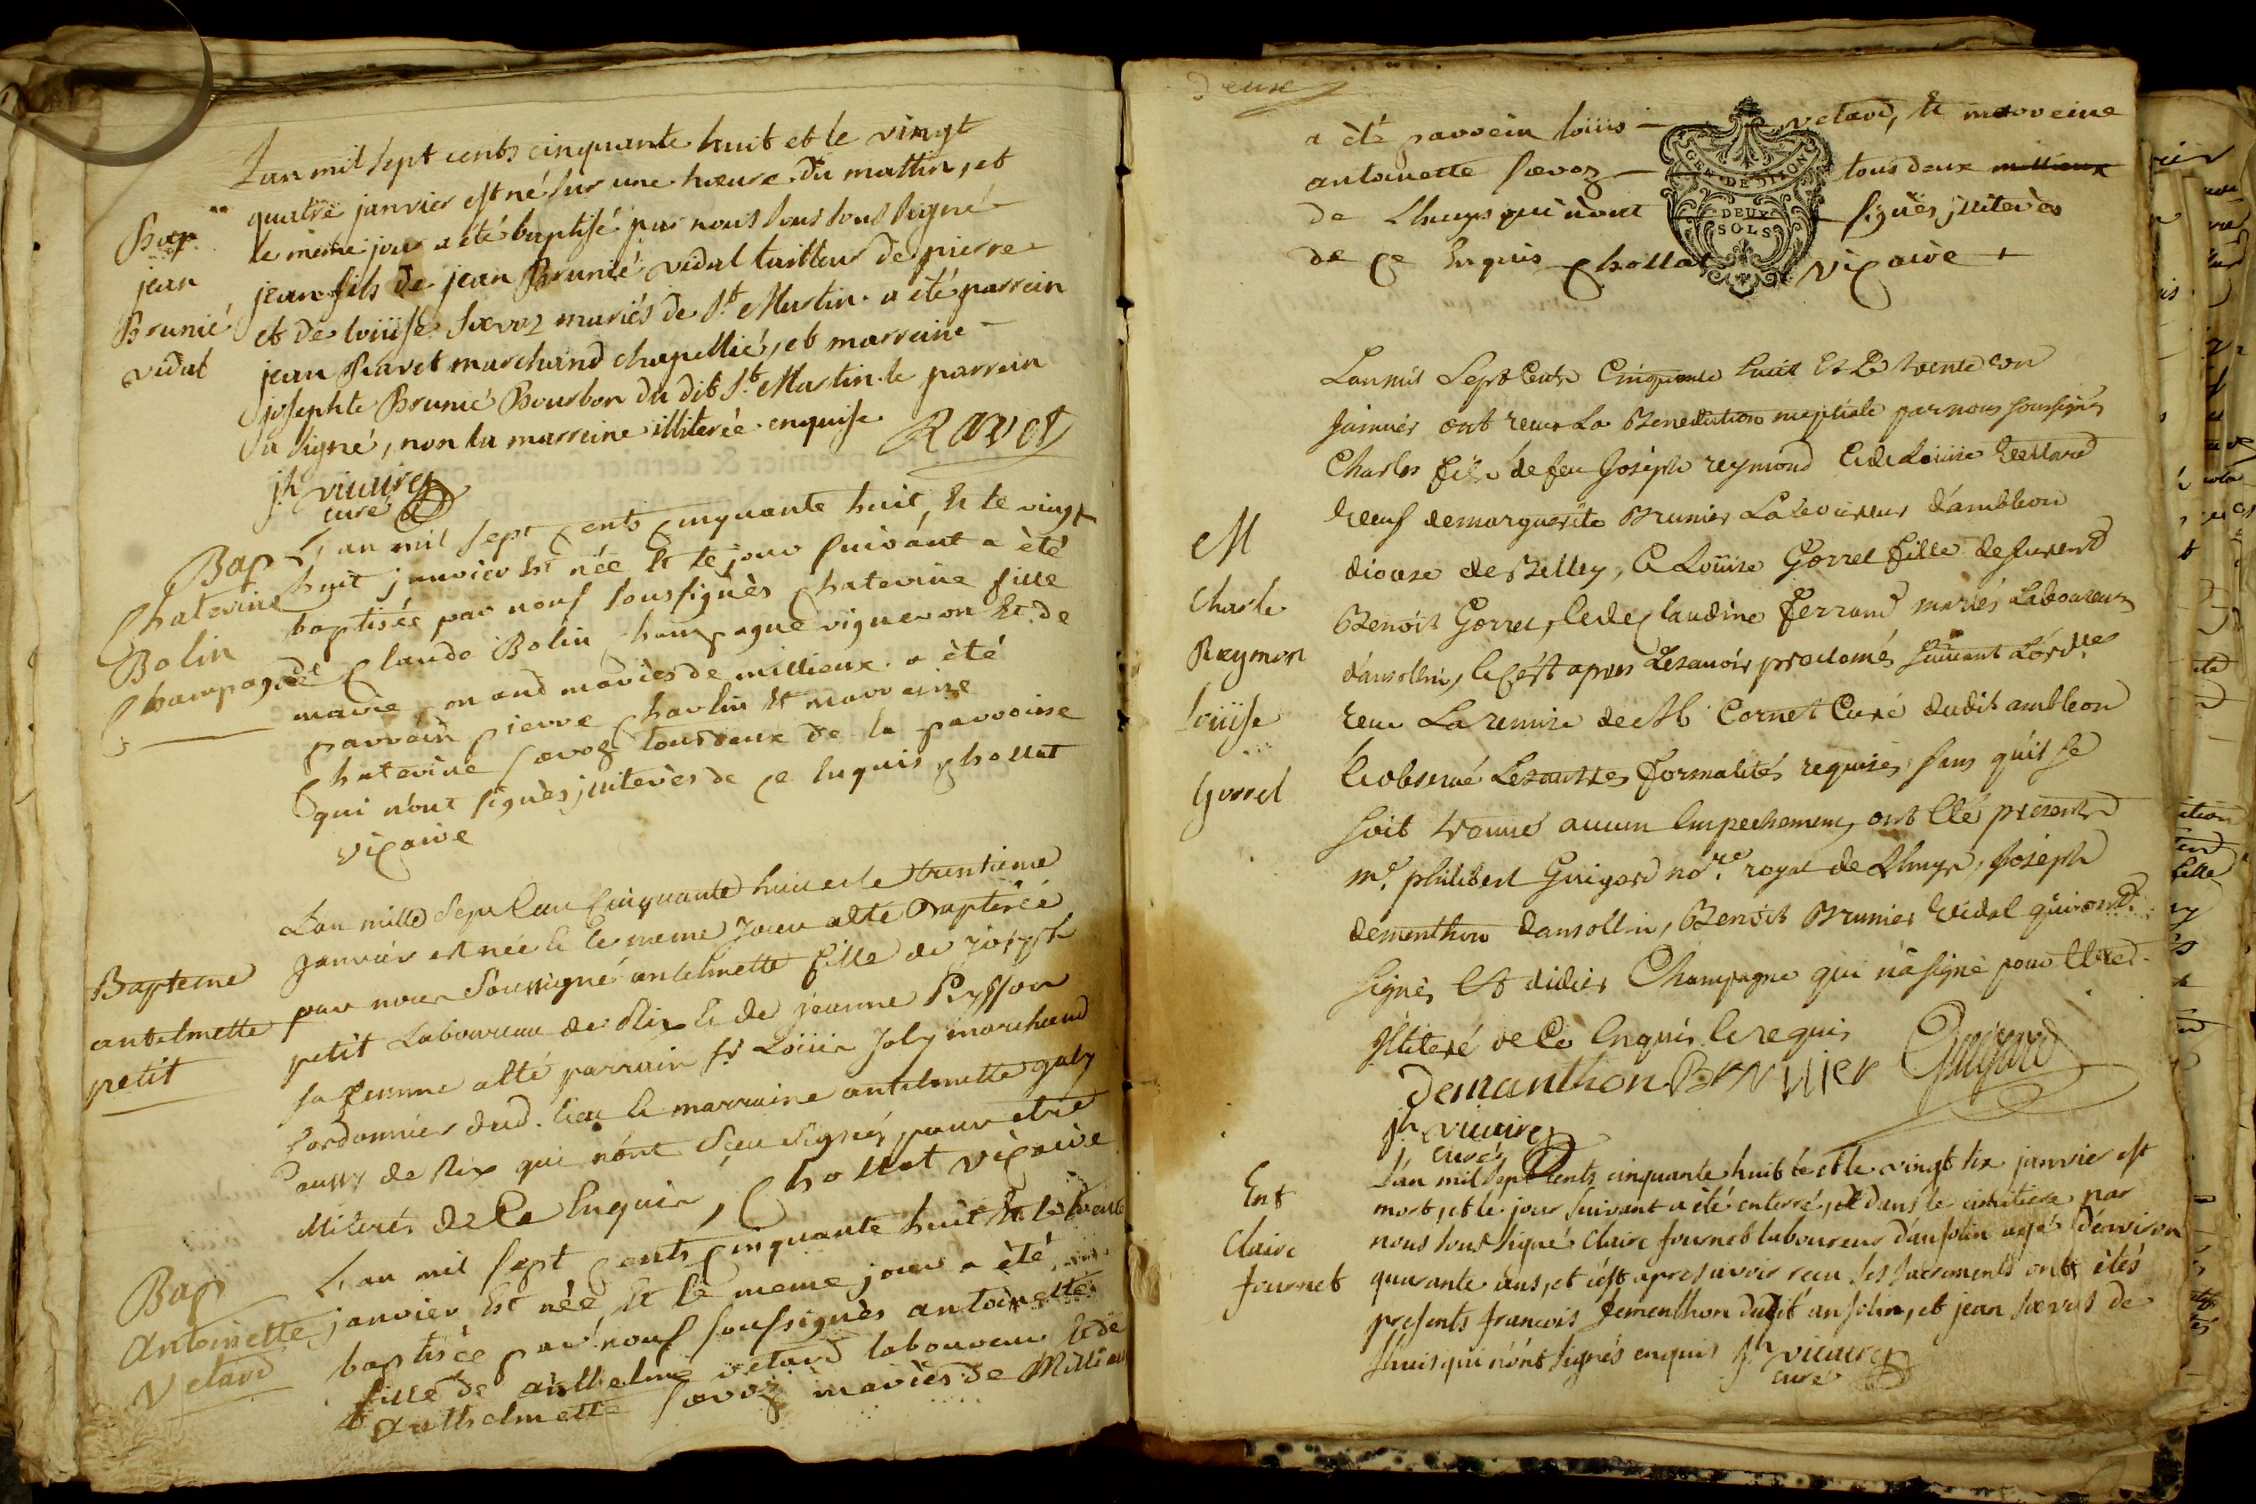 Lan mil sept cents cinquante huit et le vingt
quatre janvier est né sur une hœure du mattin, et
le même jour a été baptisé par nous sous soussigné
jean fils de jean Brunié vidal tailleur de pierre
et de loüise sœvoz mariés de St Martin. a été parrein
jean Ravet marchand chapellié, et marreine
josephte Brunié Bourbon du dit St Martin. le parrein
a signé, non la marreine illiterée enquise
Ravet
jh vicaire
curé
Bap
jean
Brunié
vidal
Lan mil sept cents cinquante huit, Et le vingt
huit janvier Est née Et le jour suivant a èté
baptisée par nous soussignès Chaterine fille
de Claude Bolin Champagne vigneron Et de
marie mariès de millieux. a èté
parrain pierre Charlin Et marraine
Chaterine sœvoz tous deux de la parroisse
qui n'ont signès jlliterès de ce Enquis Chollat
vicaire
Bap
Chaterine
Bolin
Champagne
Lan mille Sept Cent Cinquante huit et le trentieme
Janvier est née & le meme Jour a été Baptisée
par nous Soussigné antelmette fille de joseph
petit Laboureur de Rix & de jeanne Pysson
sa femme a été parrain sr Loüis Joly marchand
Cordonnier dud. lieu & marraine antelmette galy
aussy de Rix qui n'ont Sceu Signer, pour etre
illiterés de Ce Enquis, Chollat vicaire
Bapteme
antelmette
petit
Lan mil sept cents Cinquante huit Et le trente
janvier Est née Et le meme jour a èté
baptisèe par nous soussignès antoinette
fille de anthelme vetard laboureur Et de
Anthelmette sœvoz mariès de Millieu
Bap
Antoinette
Vetard
deux
a èté parrein loüis vetard, Et marreine
antoinette sœvoz tous deux millieux
de Lhuys qui n'ont signès jlliterès
de ce Enquis Chollat vicaire
GEN. DE DIJON
DEUX
SOLS
Lan mil Sept Cents Cinquante huit Et Le trente un
Janvier ont reçu La Benediction nuptiale par nous soussignés
Charles fils de feu Joseph reymond & de Loüise
veuf de marguerite Brunier Laboureur d'ambleon
diocese de Belley, & Loüise Gorrel fille de
Benoit Gorrel, & de Claudine ferrand mariés Laboureurs
d'ansollin, & C'est apres Les avoir proclamés suivant L'ordre
reçu La remise de Mr Cornet Curé dudit ambleon
& observé Les autres formalités requises sans qu'il se
soit trouvé aucun Empechement, ont Eté presents
me. philibert Guigard nore. royal de Lhuys, Joseph
dementhon d'ansollin, Benoit Brunier Vidal qui ont
signés Et didier Champagne qui n'a signé pour Etre
jlliteré de Ce Enquis & requis
Demanthon BRNUIER Guigard
jh vicaire
curé
M
Charle
Raymon
loüise
Gorrel
L'an mil sept cents cinquante huit et le vingt six janvier est
mort, et le jour suivant a été enterré, dans le cimitiere par
nous soussigné Claire fournet laboureur d'ansolin agé d'environ
quarante ans, et c'est apres avoir recu ses sacrements ont étés
presents francois Dementhon dudit ansolin, et jean sœvos de
Lhuis qui n'ont signés enquis jh vicaire
curé
Ent
Claire
fournet